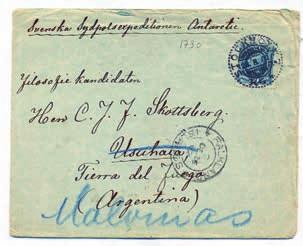 Svenska Sydpolsexpeditionen Antarctic.
1730
Filosofie kandidaten
Herr C. J. F. Skottsberg.
Ushuaia
Tierra del Fuego
(Argentina)
Malvinas